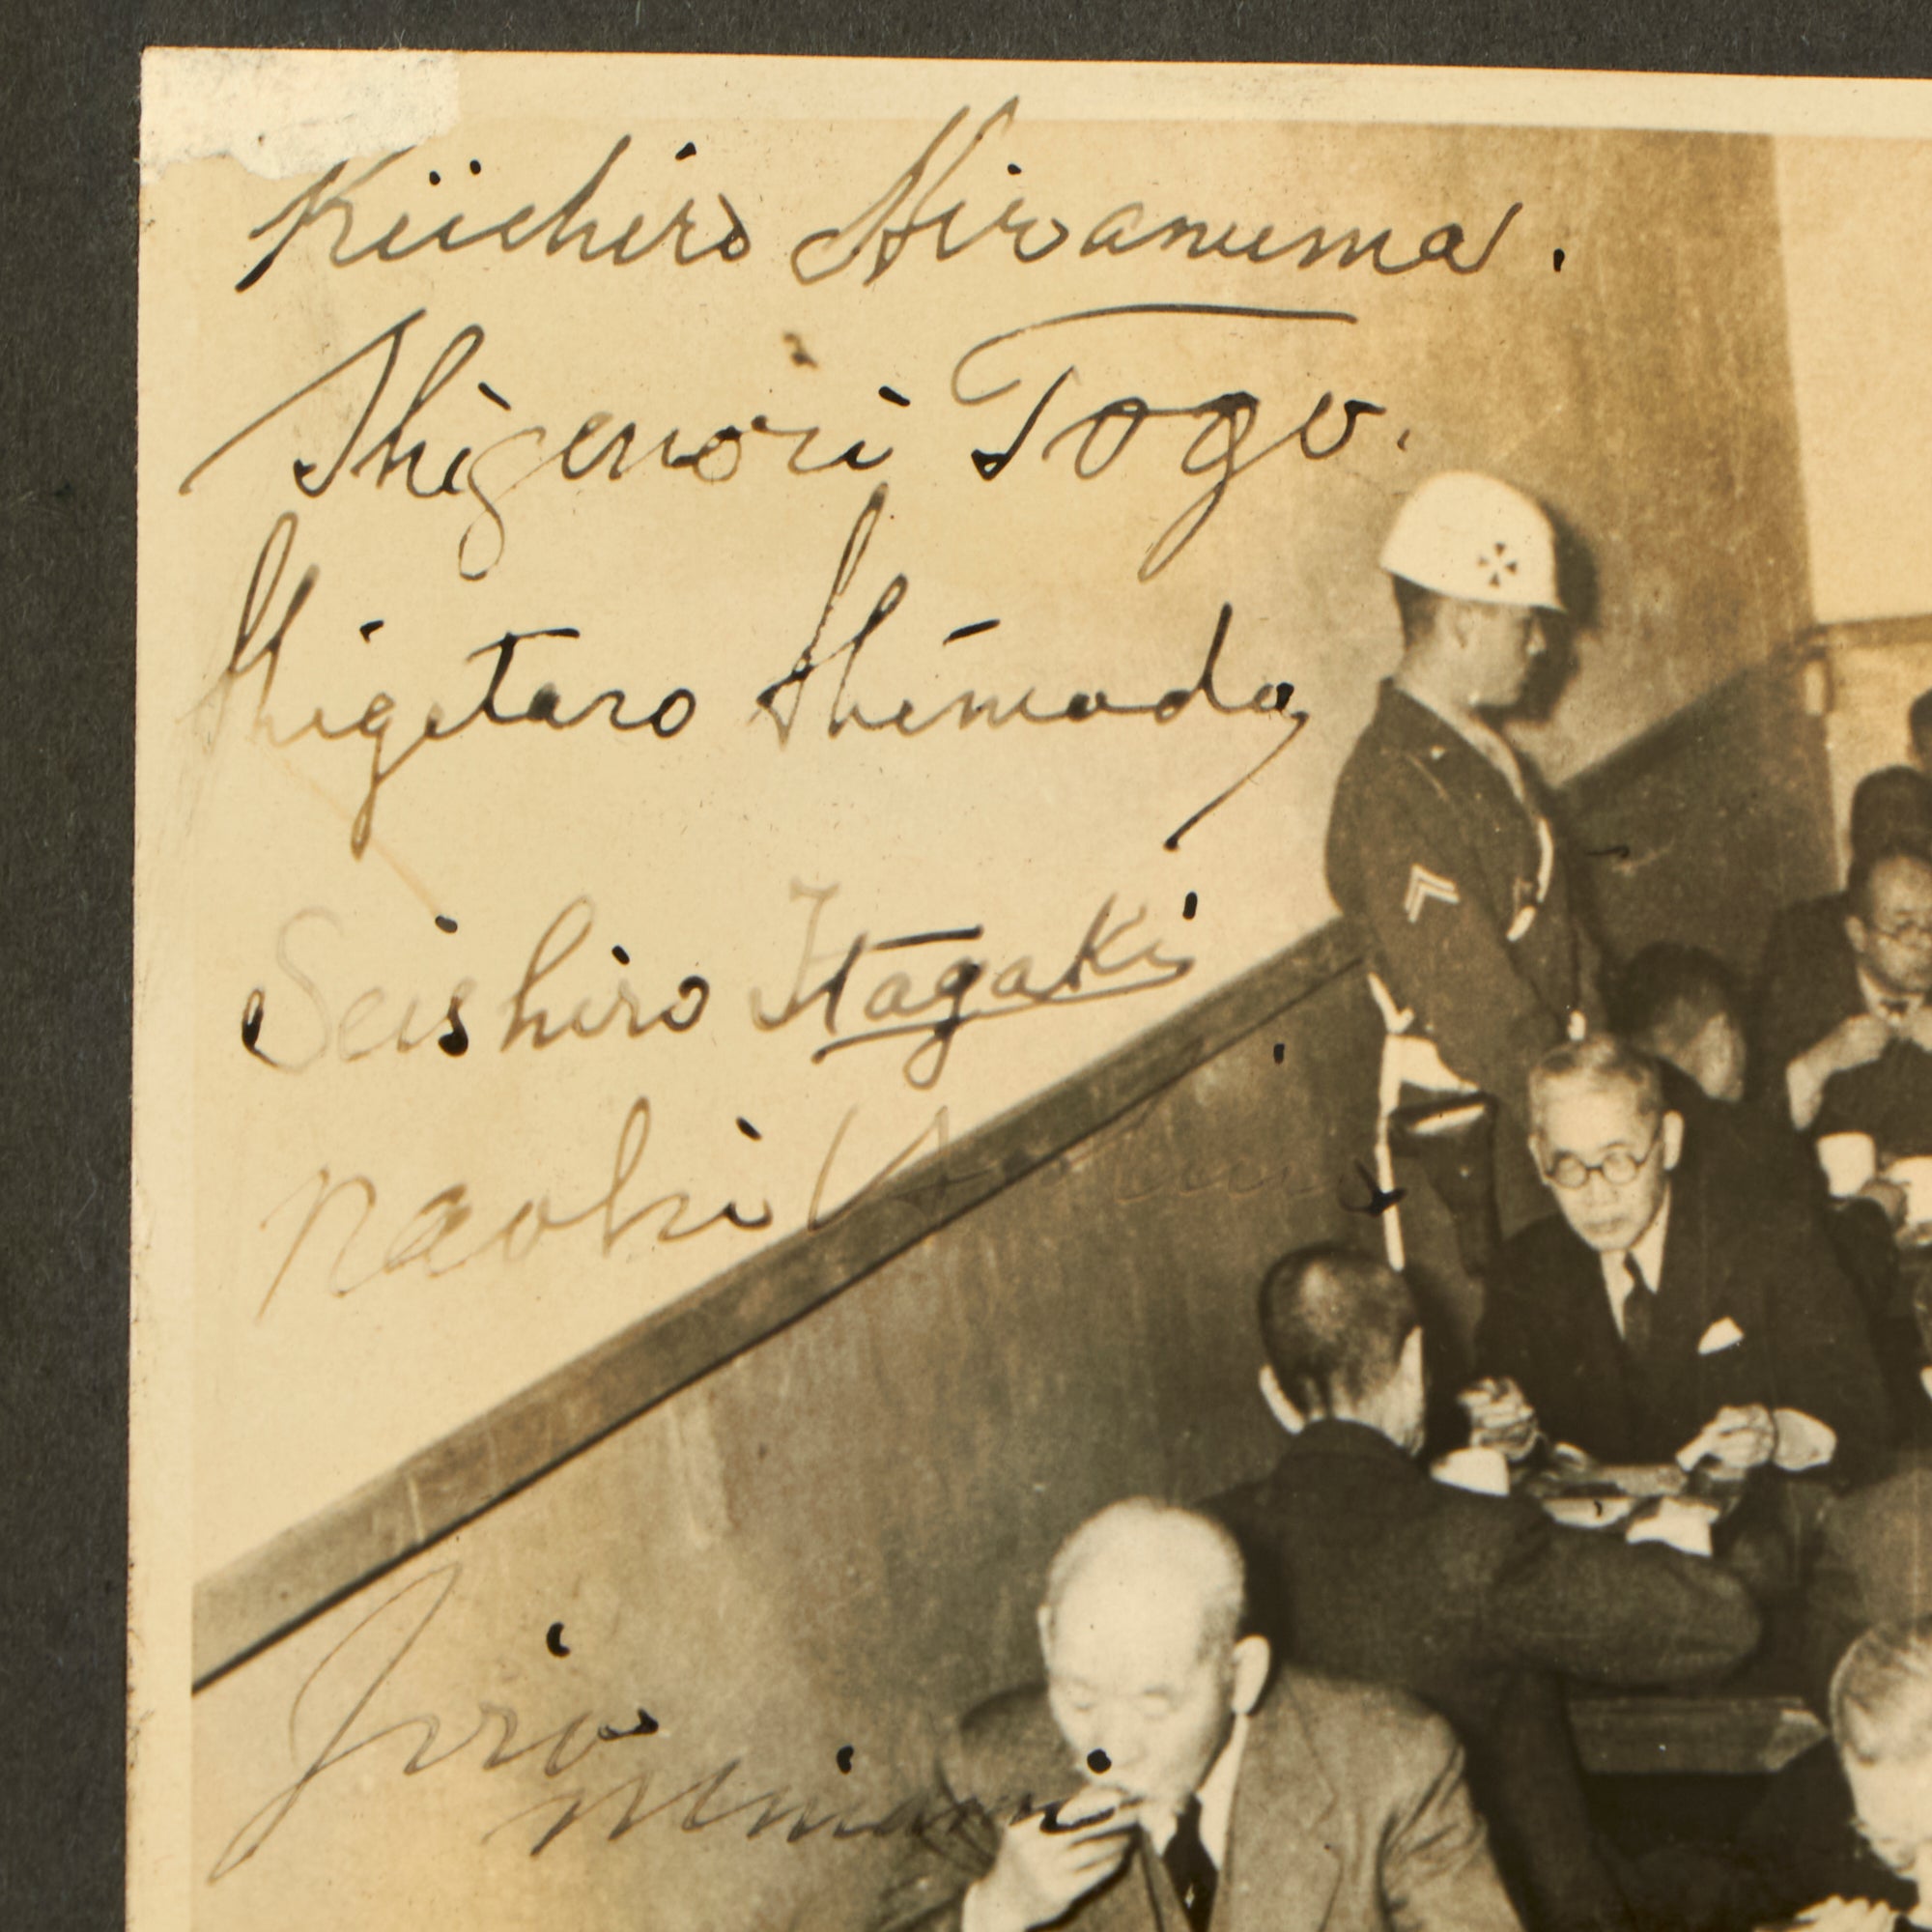 Kiichiro Hiranuma.
Shigenori Togo.
Shigetaro Shimada
Seishiro Itagaki
Naoki
Jiro
Minami